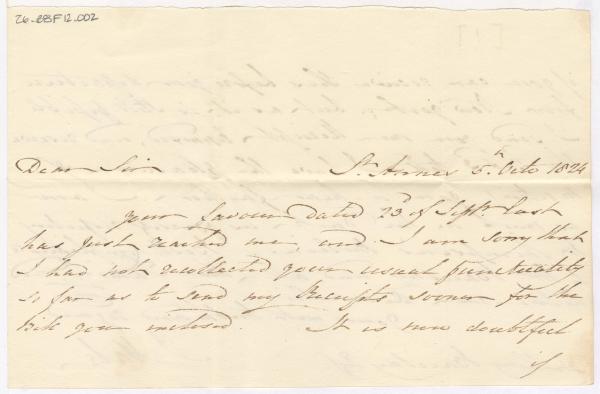 26-BBF12.002
[1]
Dear Sir St. Annes 5th Octo 1824
your favour dated 23d of Septr. last
has just reached me, and I am sorry that
I had not recollected your usual punctuality
so far as to send my Receipts sooner for the
Bill you inclosed. It is now doubtful
if